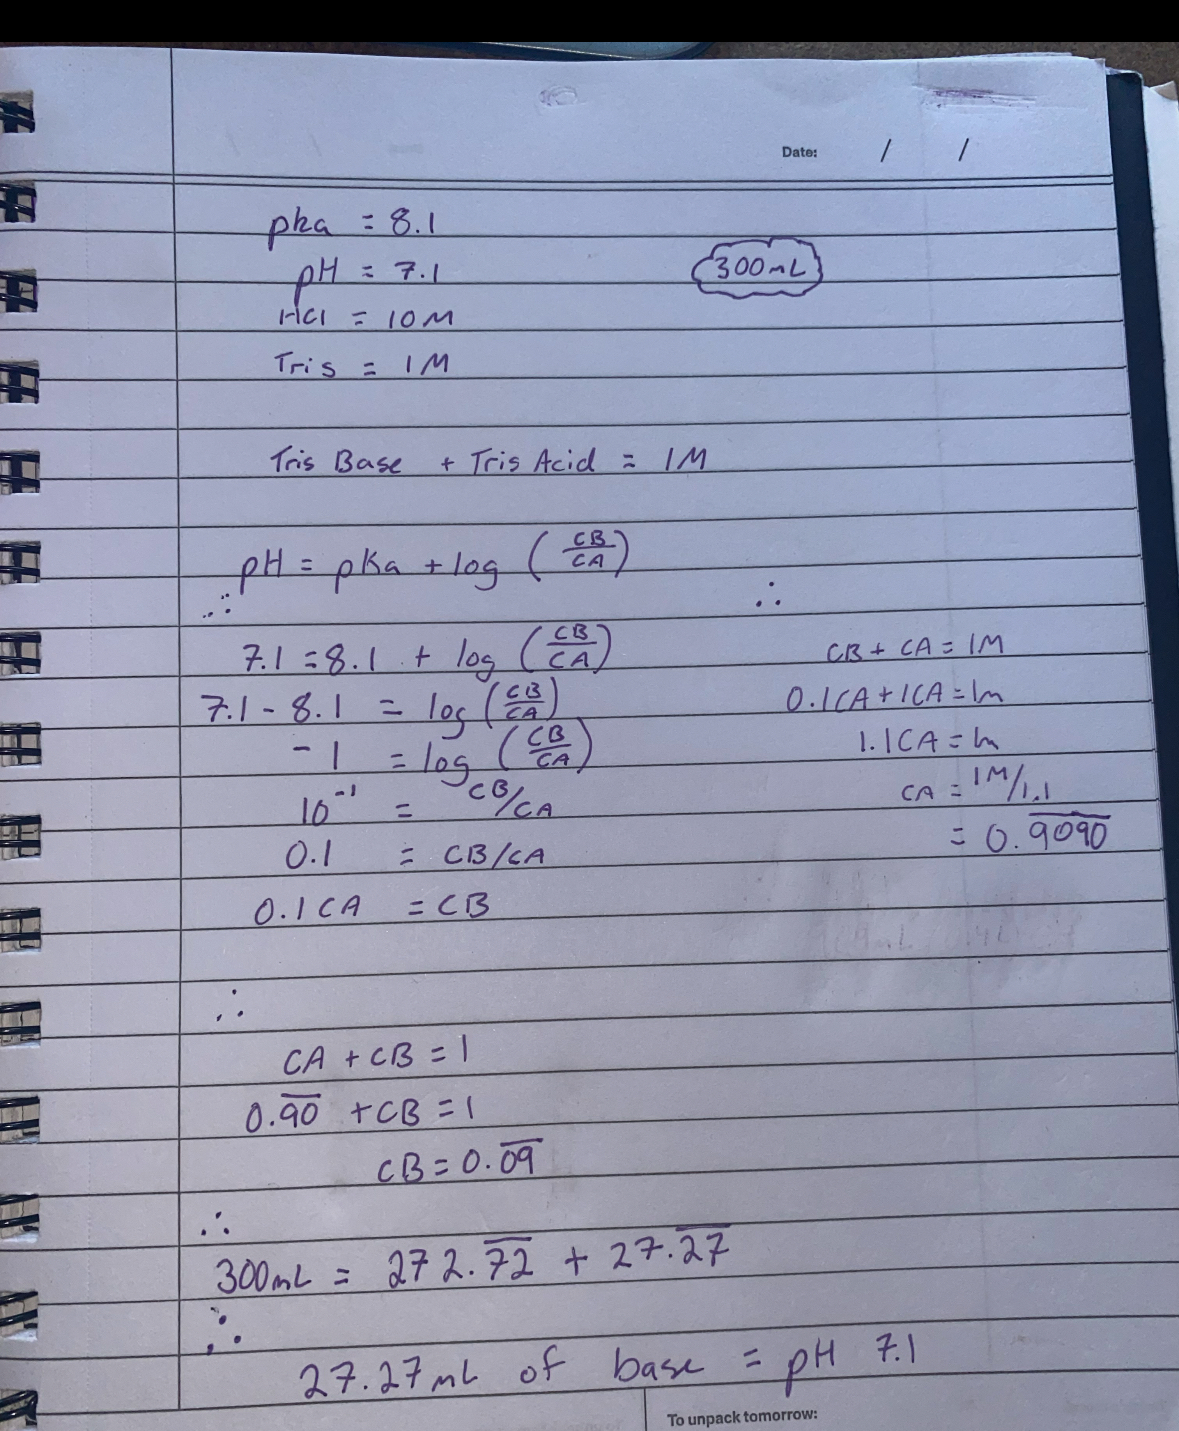 Date: / /
pka = 8.1
pH = 7.1
300mL
HCl = 10M
Tris = 1M
Tris Base + Tris Acid = 1M
pH = pKa + log (CB/CA)
∴
7.1 = 8.1 + log (CB/CA)
7.1 - 8.1 = log (CB/CA)
-1 = log (CB/CA)
10⁻¹ = CB/CA
0.1 = CB/CA
0.1CA = CB
∴
CB + CA = 1M
0.1CA + 1CA = 1m
1.1CA = 1m
CA = 1M/1.1
= 0.9̅0̅9̅0̅
∴
CA + CB = 1
0.9̅0̅ + CB = 1
CB = 0.0̅9̅
∴
300mL = 272.7̅2̅ + 27.2̅7̅
∴
27.27mL of base = pH 7.1
To unpack tomorrow: